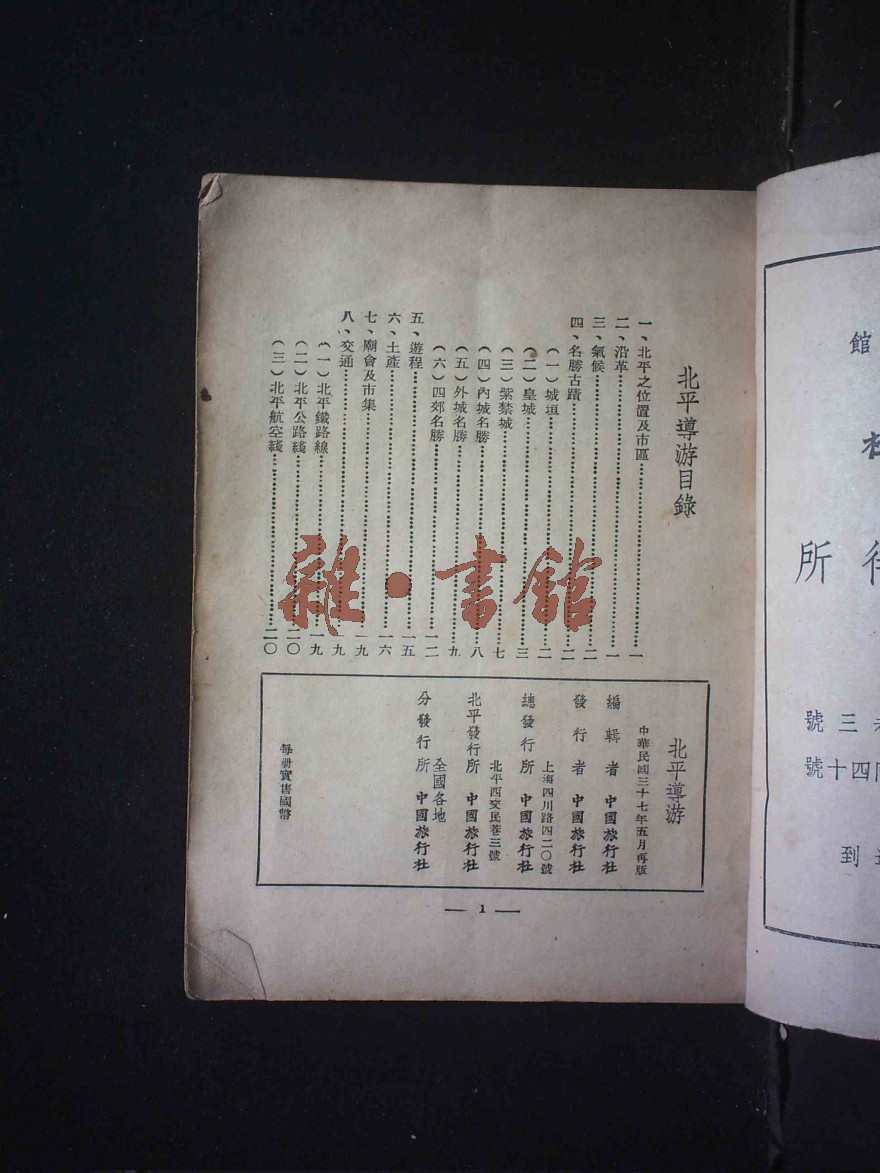 北平導游目錄
一、北平之位置及市區…………一
二、沿革…………一
三、氣候…………二
四、名勝古蹟…………二
(一)城垣…………二
(二)皇城…………三
(三)紫禁城…………七
(四)內城名勝…………八
(五)外城名勝…………九
(六)四郊名勝…………一二
五、遊程…………一五
六、土產…………一六
七、廟會及市集…………一九
八、交通…………一九
(一)北平鐵路線…………一九
(二)北平公路綫…………二〇
(三)北平航空綫…………二〇
北平導游
中華民國三十七年五月再版
編輯者 中國旅行社
發行者 中國旅行社
上海四川路四二〇號
總發行所 中國旅行社
北平西交民巷三號
北平發行所 中國旅行社
全國各地
分發行所 中國旅行社
每冊實售國幣
— 1 —
雜·書館
館
所
三號
四十號
到